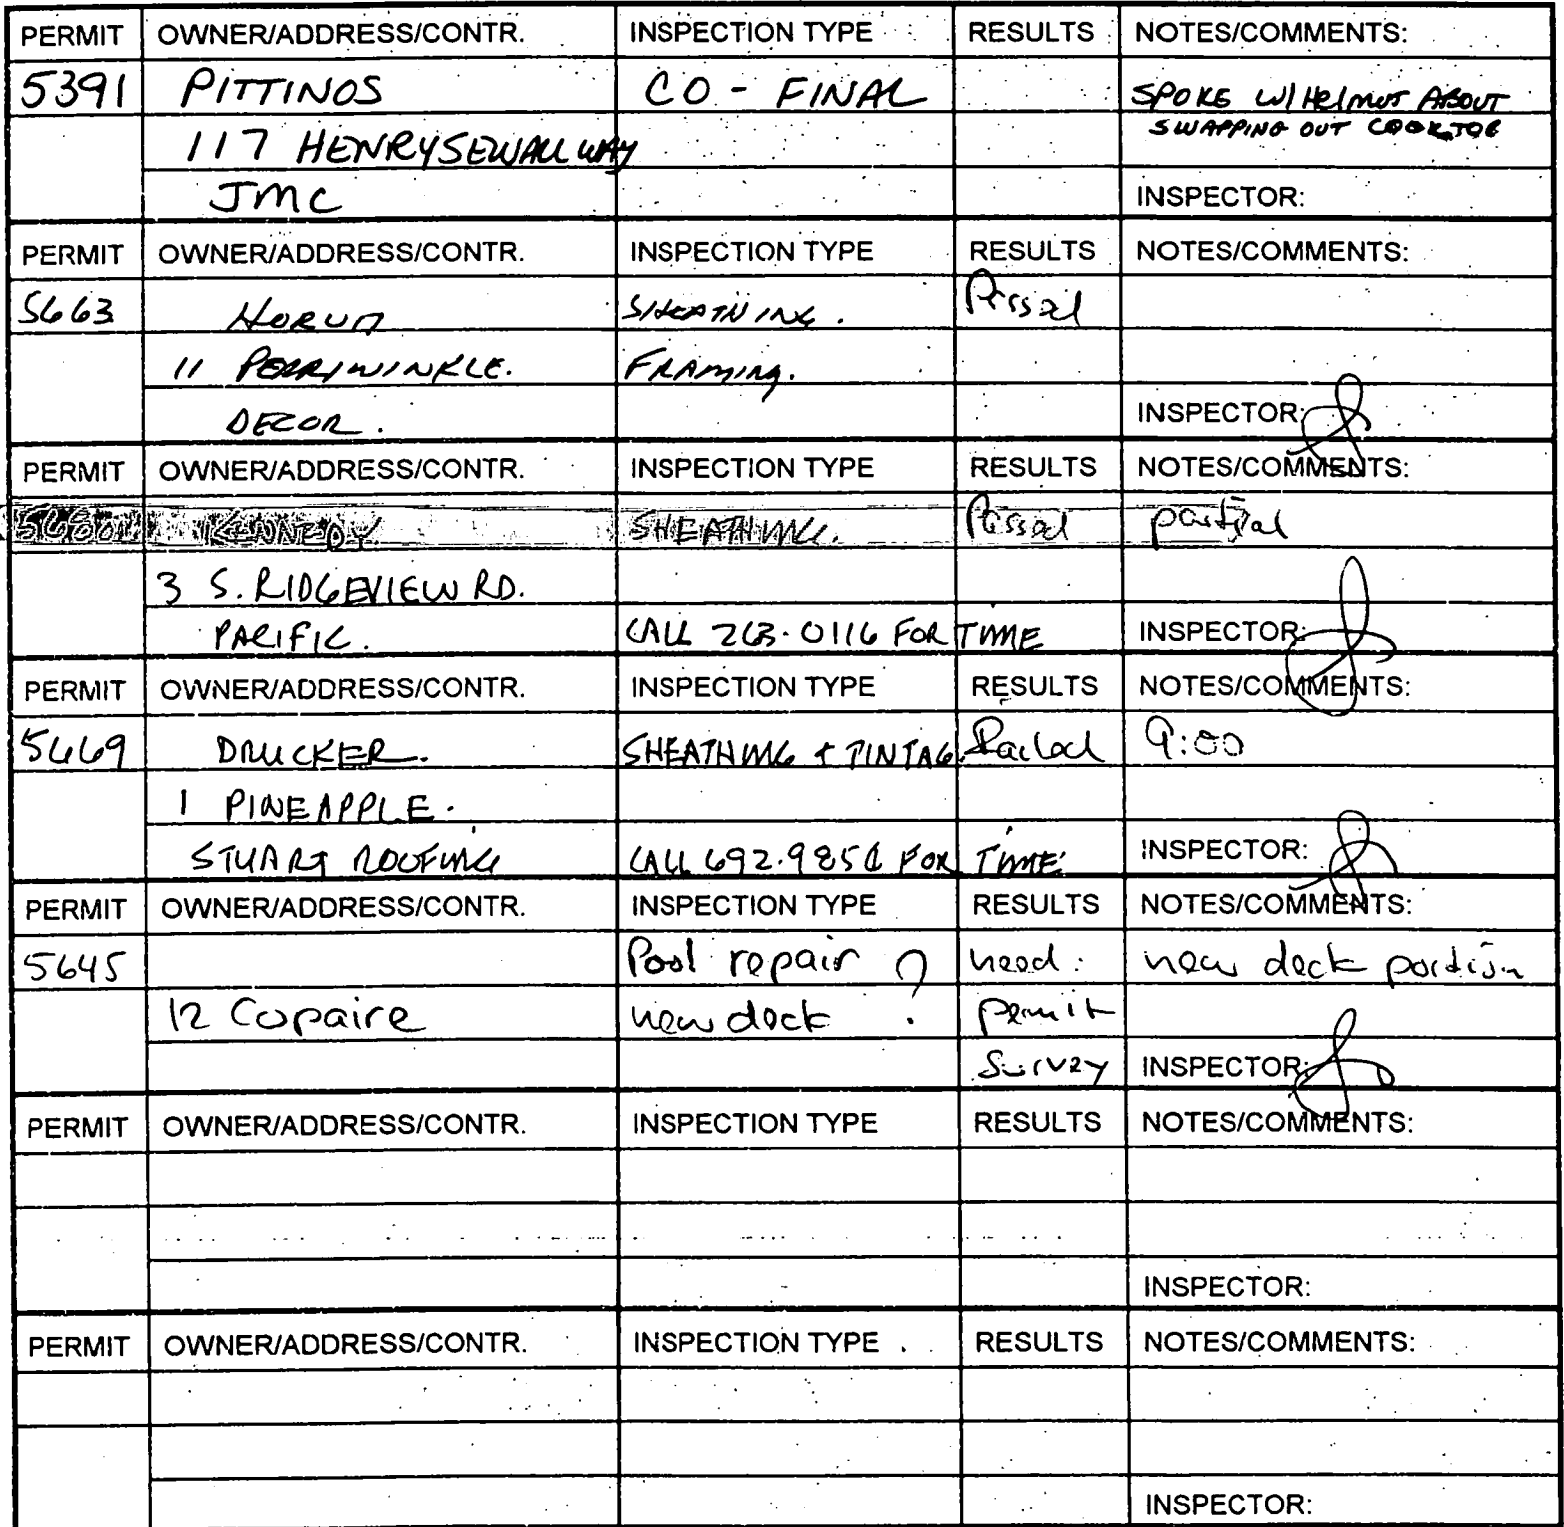 PERMIT OWNER/ADDRESS/CONTR. INSPECTION TYPE RESULTS NOTES/COMMENTS:
5391 PITTINOS CO - FINAL SPOKE W/ Helmut ABOUT
SWAPPING OUT COOKTOP
117 HENRY SEWALL WAY
JMC INSPECTOR:
PERMIT OWNER/ADDRESS/CONTR. INSPECTION TYPE RESULTS NOTES/COMMENTS:
5663 SHEATHING. Passed
11 PERRIWINKLE. FRAMING.
DECOR. INSPECTOR:
PERMIT OWNER/ADDRESS/CONTR. INSPECTION TYPE RESULTS NOTES/COMMENTS:
KENNEDY SHEATHING. Passed partial
3 S. RIDGEVIEW RD.
PACIFIC. CALL 263.0116 FOR TIME INSPECTOR:
PERMIT OWNER/ADDRESS/CONTR. INSPECTION TYPE RESULTS NOTES/COMMENTS:
5669 DRUCKER. SHEATHING + TINTAG. 9:00
1 PINEAPPLE.
STUART ROOFING CALL FOR TIME. INSPECTOR:
PERMIT OWNER/ADDRESS/CONTR. INSPECTION TYPE RESULTS NOTES/COMMENTS:
5645 Pool repair ? need: new deck portion
12 Copaire new deck permit
Survey INSPECTOR:
PERMIT OWNER/ADDRESS/CONTR. INSPECTION TYPE RESULTS NOTES/COMMENTS:
INSPECTOR:
PERMIT OWNER/ADDRESS/CONTR. INSPECTION TYPE . RESULTS NOTES/COMMENTS:
INSPECTOR: